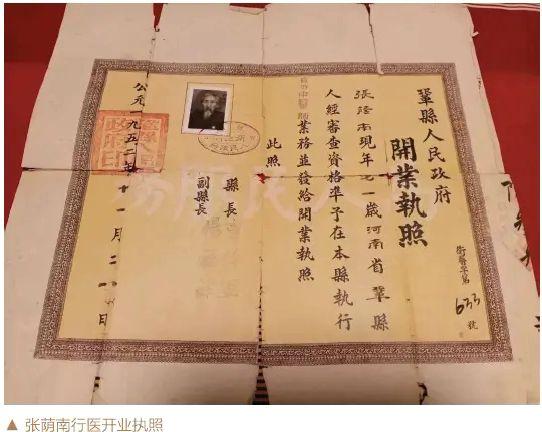 鞏縣人民政府
開業執照
衛醫字第633號
張蔭南現年 一歲河南省鞏縣
人經審查資格準予在本縣執行
中醫師業務並發給開業執照
此照
縣長
副縣長
公元一九五二年十一月二 日
▲ 张荫南行医开业执照